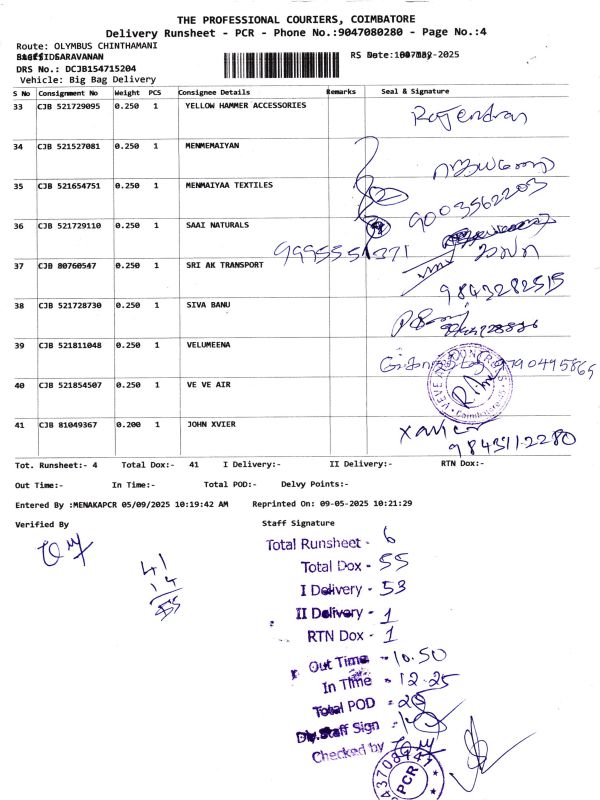 THE PROFESSIONAL COURIERS, COIMBATORE
Delivery Runsheet - PCR - Phone No.:9047080280 - Page No.:4
Route: OLYMBUS CHINTHAMANI
SARAVANAN
RS Date: -2025
DRS No.: DCJB154715204
Vehicle: Big Bag Delivery
S No Consignment No Weight PCS Consignee Details Remarks Seal & Signature
33 CJB 521729095 0.250 1 YELLOW HAMMER ACCESSORIES Rajendran
34 CJB 521527081 0.250 1 MENMEMAIYAN
35 CJB 521654751 0.250 1 MENMAIYAA TEXTILES 9003562203
36 CJB 521729110 0.250 1 SAAI NATURALS
9995551371
37 CJB 80760547 0.250 1 SRI AK TRANSPORT
9843282515
38 CJB 521728730 0.250 1 SIVA BANU
39 CJB 521811048 0.250 1 VELUMEENA 9790495865
40 CJB 521854507 0.250 1 VE VE AIR
41 CJB 81049367 0.200 1 JOHN XVIER Xavier
9843112280
Tot. Runsheet:- 4 Total Dox:- 41 I Delivery:- II Delivery:- RTN Dox:-
Out Time:- In Time:- Total POD:- Delvy Points:-
Entered By :MENAKAPCR 05/09/2025 10:19:42 AM Reprinted On: 09-05-2025 10:21:29
Verified By Staff Signature
41
14
55
Total Runsheet - 6
Total Dox - 55
I Delivery - 53
II Delivery - 1
RTN Dox - 1
Out Time - 10.50
In Time - 12.25
Total POD -
Dly.Staff Sign -
Checked by
PCR